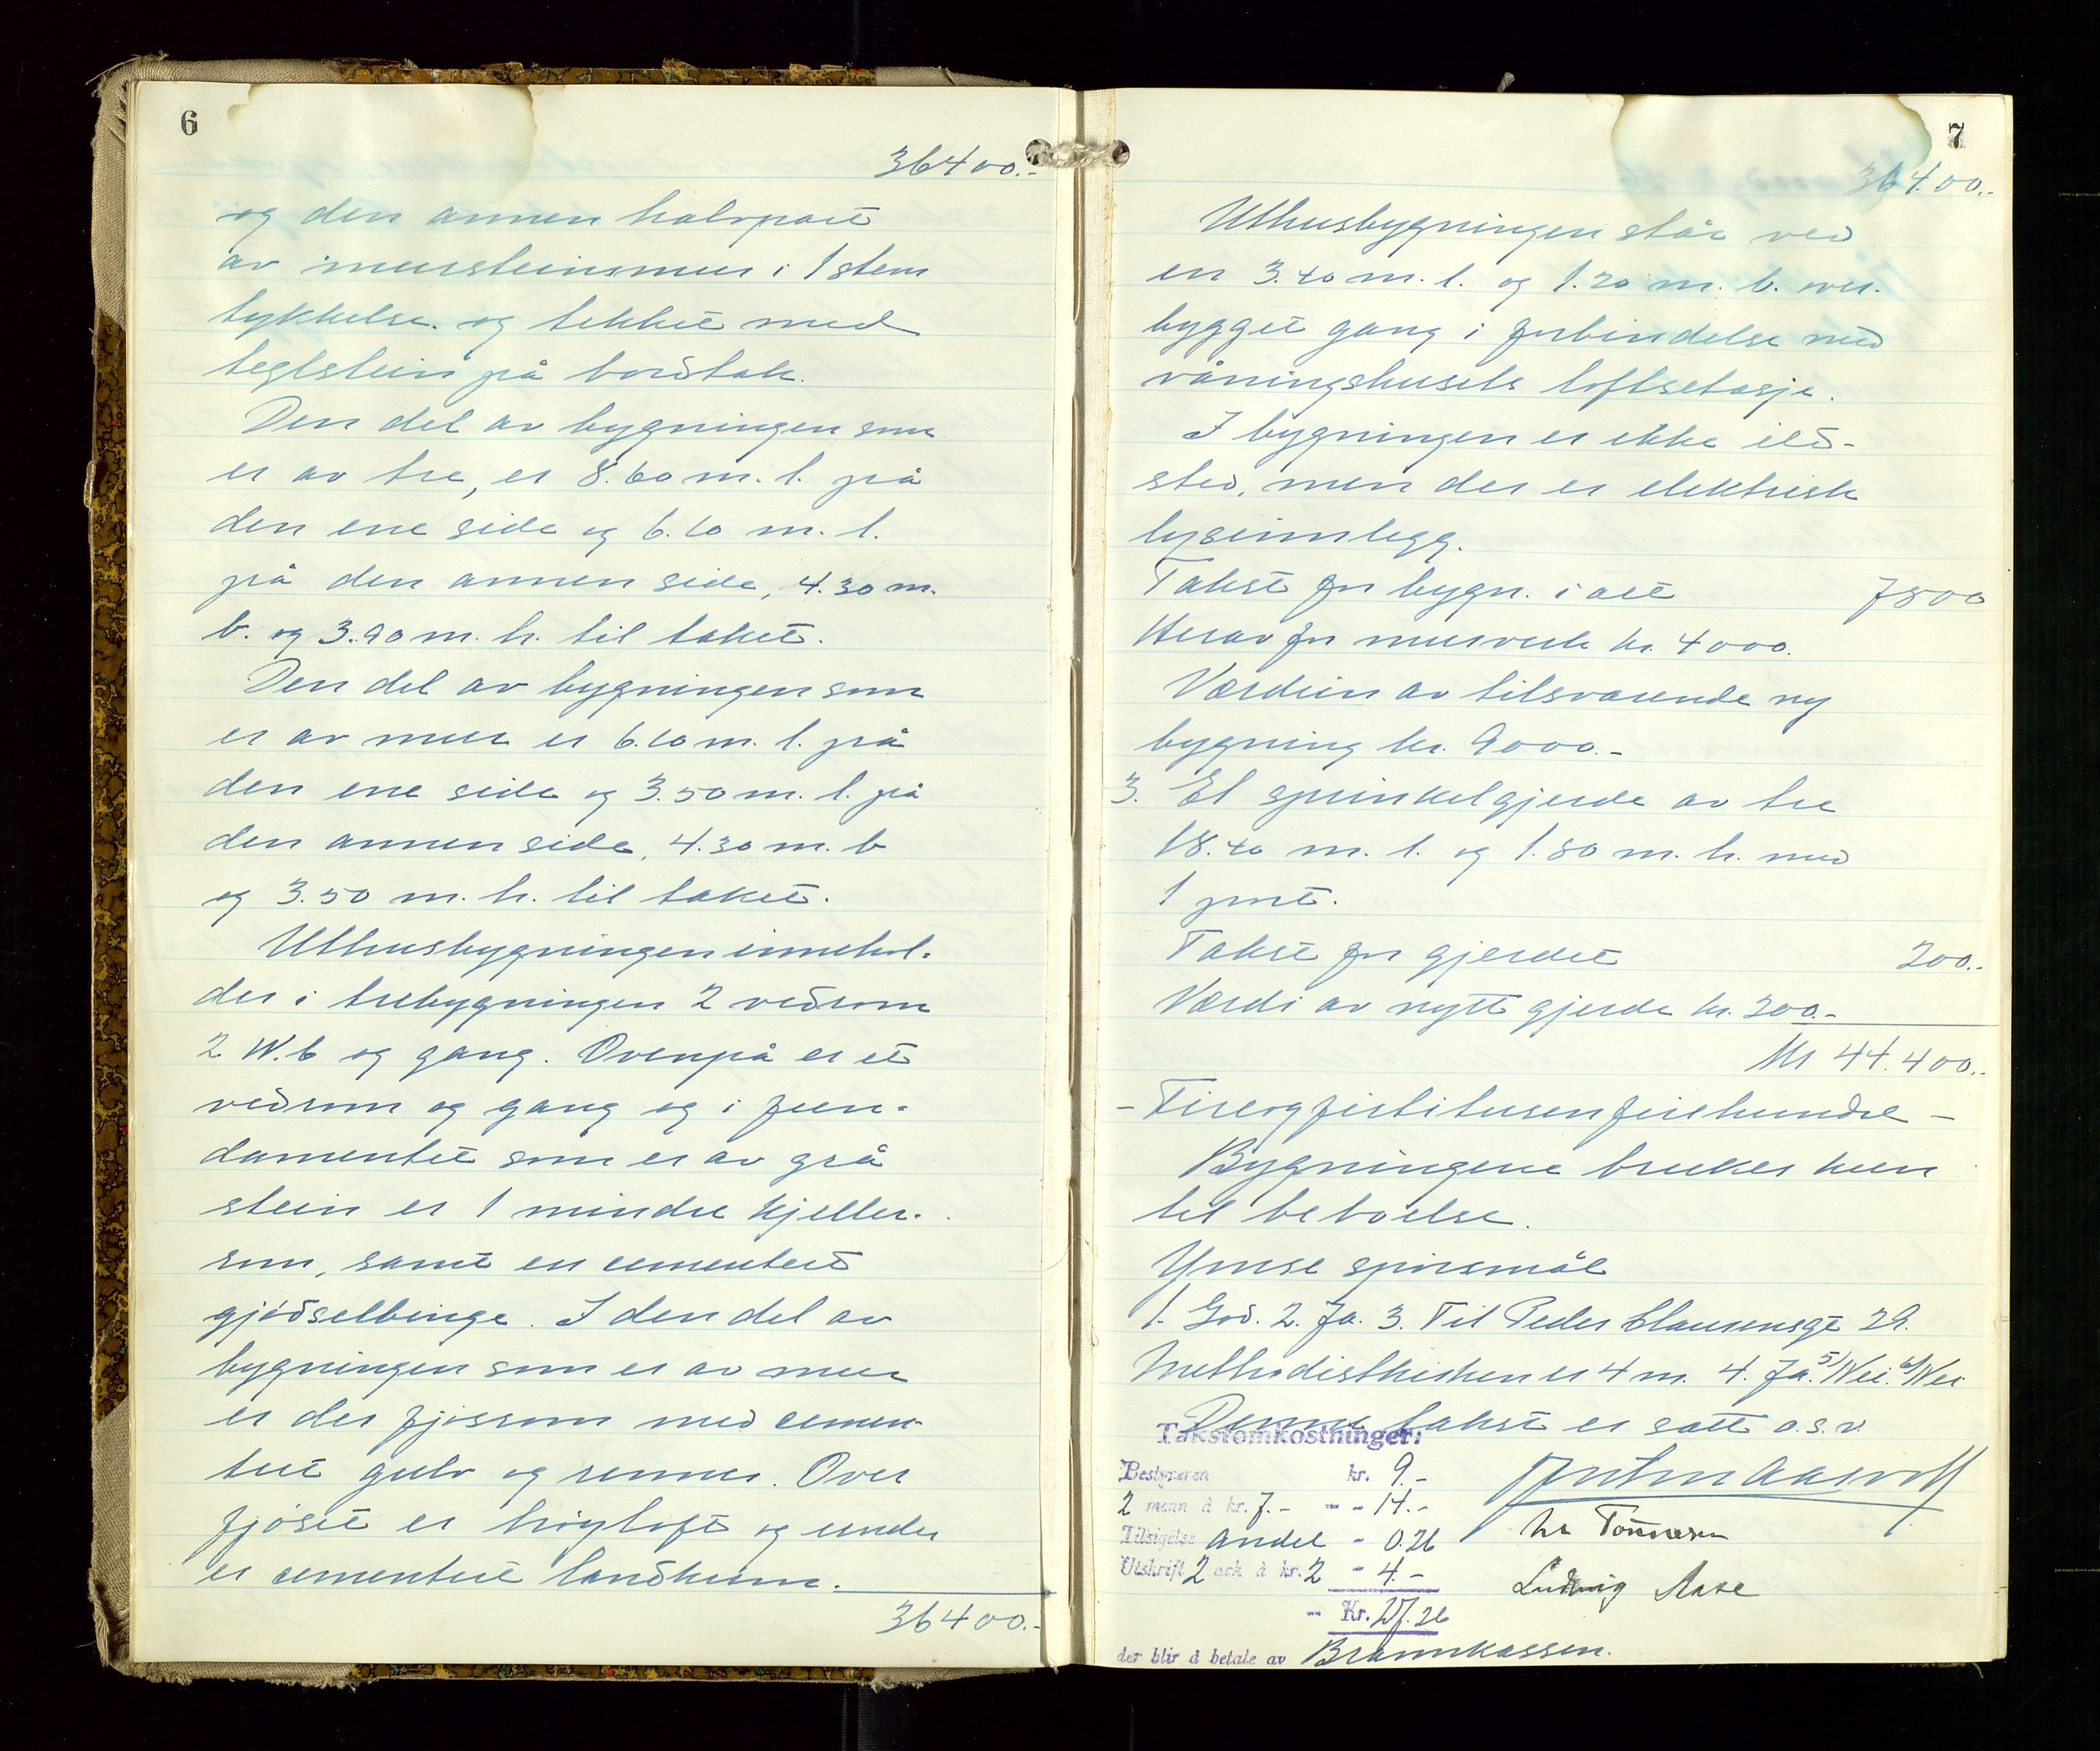 6
36400.-
og den annen halvpart
av mursteinsmur i 1 stens
tykkelse. og tekket med
teglstein på bordtak.
Den del av bygningen som
er av tre, er 8.60 m. l. på
den ene side og 6.10 m. l.
på den annen side, 4.30 m.
b. og 3.90 m. h. til taket.
Den del av bygningen som
er av mur er 6.10 m. l. på
den ene side og 3.50 m. l. på
den annen side, 4.30 m. b
og 3.50 m. h. til taket.
Uthusbygningen innehol-
der i trebygningen 2 vedrom
2 W.C og gang. Ovenpå er et
vedrom og gang og i fun-
damentet som er av grå
stein er 1 mindre kjeller-
rom, samt en cementert
gjødselbinge. I den del av
bygningen som er av mur
er der fjøsrom med cemen-
tert gulv og renner. Over
fjøset er høyloft og under
er cementert landkum.
36400.-
7
36400.-
Uthusbygningen står ved
en 3.40 m. l. og 1.20 m. b. over-
bygget gang i forbindelse med
våningshusets loftsetasje.
I bygningen er ikke ild-
sted, men der er elektrisk
lysinnlegg.
Takst for bygn. i alt 7800
Herav for murverk kr. 4000.
Værdien av tilsvarende ny
bygning kr. 9000.-
3. Et sprinkelgjerde av tre
18.40 m. l. og 1.80 m. h. med
1 port.
Takst for gjerdet 200.-
Værdi av nytt gjerde kr. 300.-
Kr 44.400.-
- Firtiogfiretusenfirehundre -
Bygningene brukes kun
til beboelse.
Ymse spørsmål
1. God. 2. Ja. 3. Til Peder Clausensgt 29.
Methodistkirken er 4 m. 4. Ja. 5) Nei. 6) Nei
Denne takst er satt o.s.v.
Takstomkostninger:
Bestyreren kr. 9.-
2 menn à kr. 7.- - - 14.-
Tilsigelse andel - 0.26
Utskrift 2 ark à kr. 2 - 4.-
- Kr. 27.26
der blir å betale av Brannkassen.
Tønnesen
Ludvig Aase